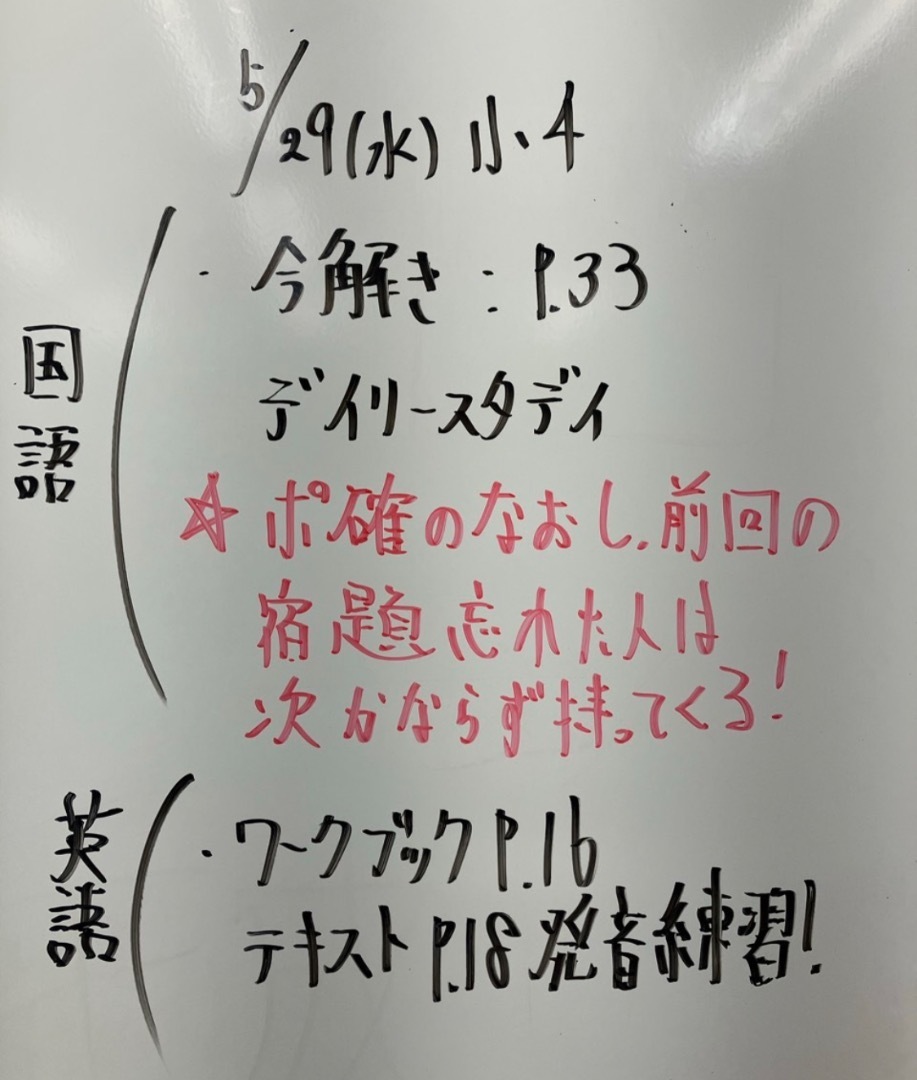 5/29(水) 小4
国語
・今解き：P.33
デイリースタディ
☆ポ確のなおし、前回の
宿題忘れた人は
次かならず持ってくる！
英語
・ワークブックP.16
テキストP.18発音練習！